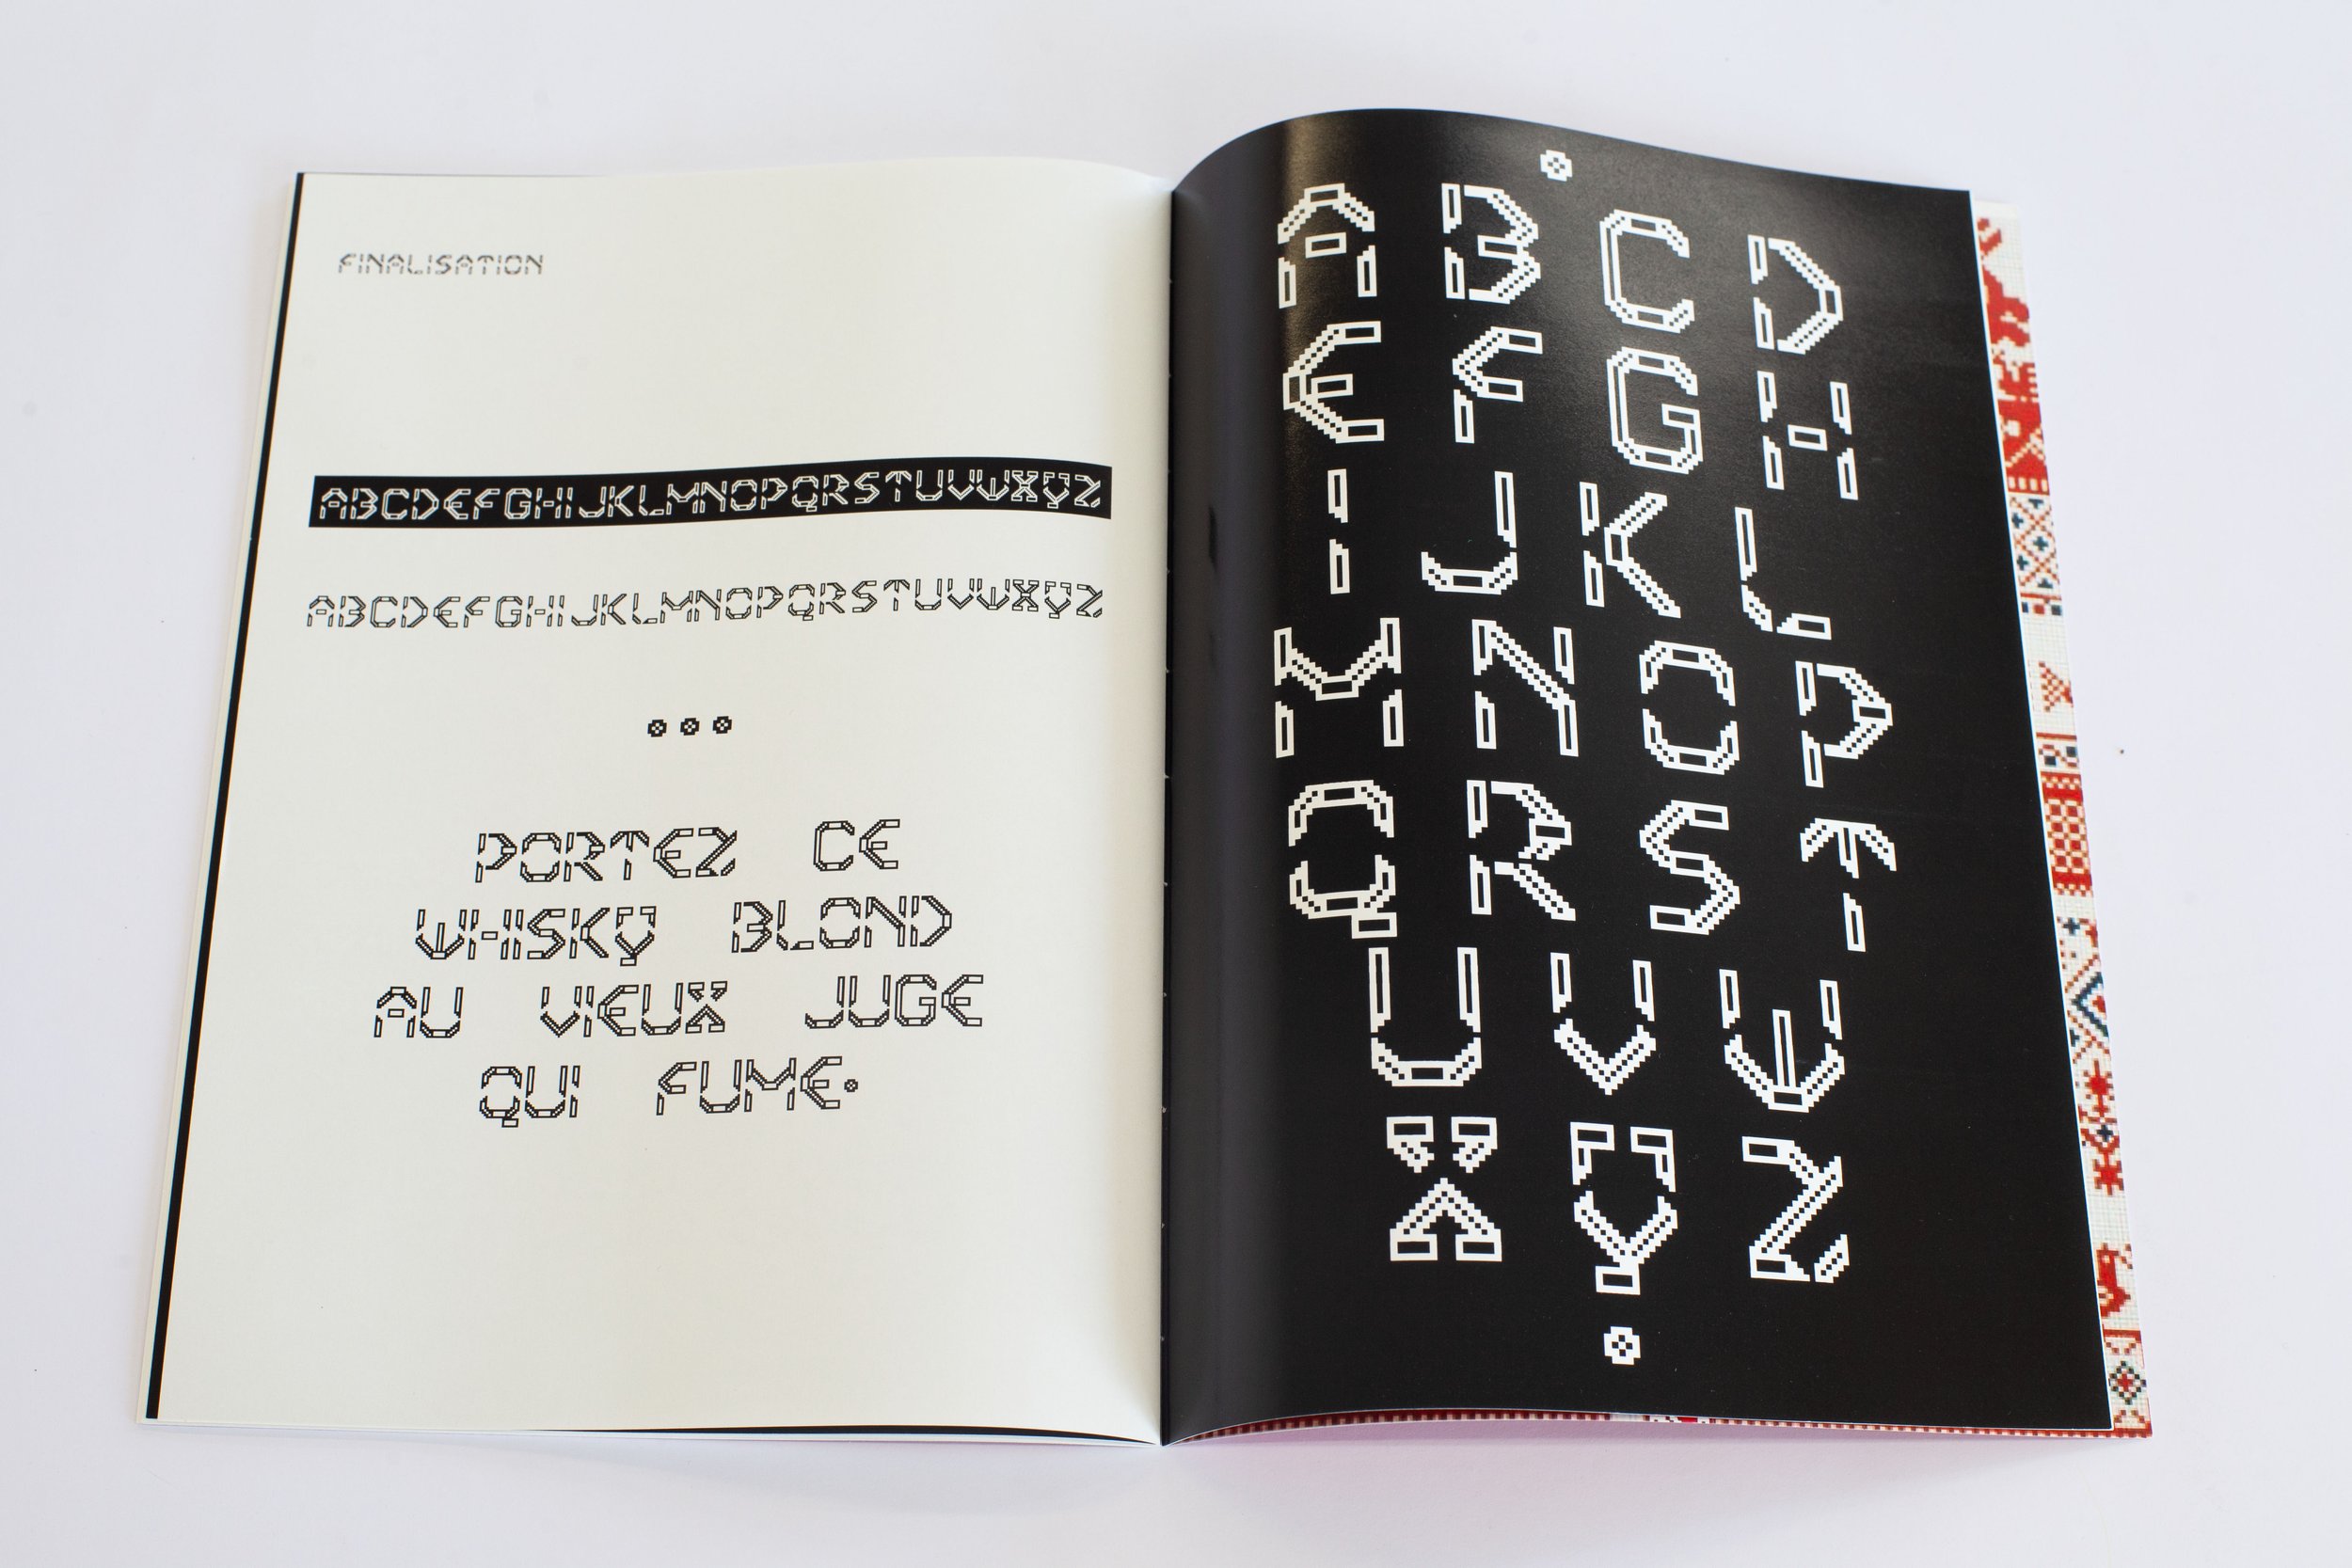 FINALISATION
ABCDEFGHIJKLMNOPQRSTUVWXYZ
ABCDEFGHIJKLMNOPQRSTUVWXYZ
PORTEZ CE
WHISKY BLOND
AU VIEUX JUGE
QUI FUME.
A B C D
E F G H
I J K L
M N O P
Q R S T
U V W
X Y Z